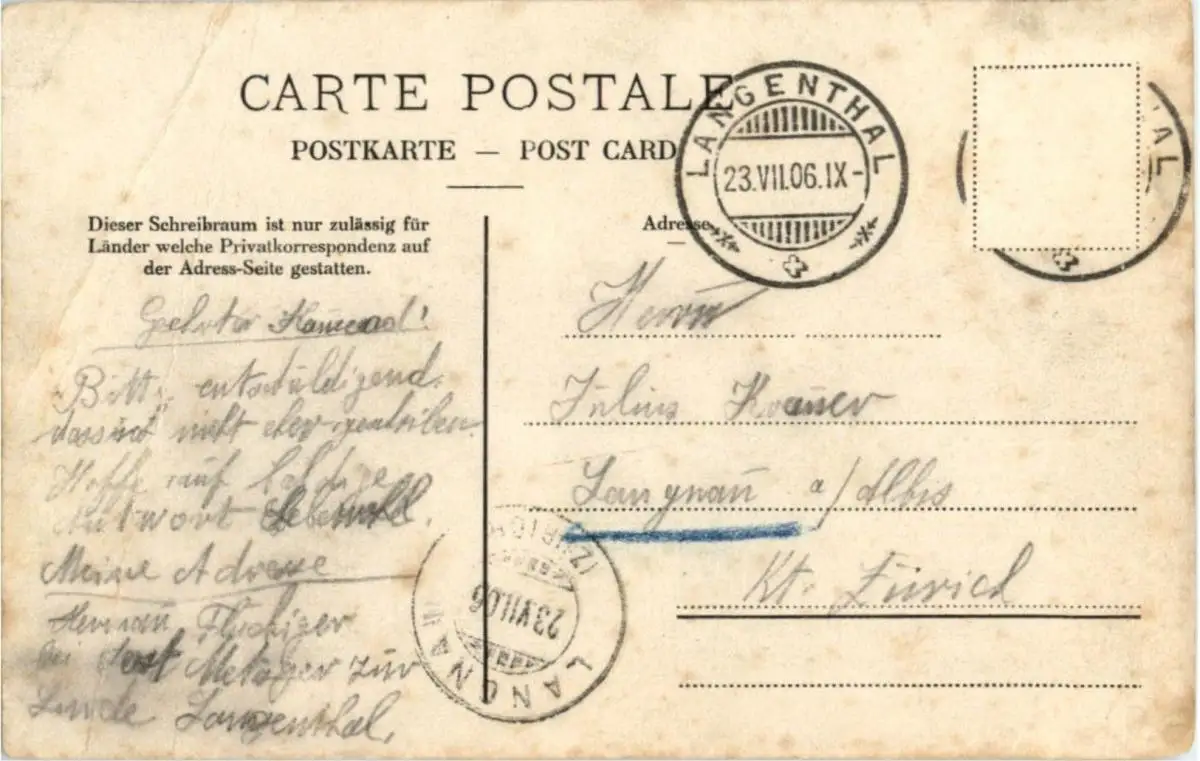 CARTE POSTALE
POSTKARTE — POST CARD
LANGENTHAL
23.VII.06.IX-
AL
Dieser Schreibraum ist nur zulässig für
Länder welche Privatkorrespondenz auf
der Adress-Seite gestatten.
Adresse
Geehrter Kamerad!
Bitte entschuldigend
dass ich nicht eher geschriben
Hoffe auf baldige
Antwort Lebewohl.
Meine Adresse
Herman Flückiger
bei Jost Metzger zur
Linde Langenthal.
Herrn
Julius
Langnau a/Albis
Kt. Zürich
LANGNAU
23 VII 06
(ZÜRICH)